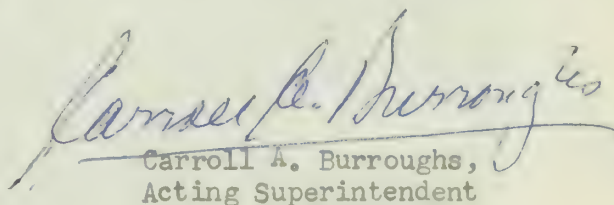 Carroll A. Burroughs
Carroll A. Burroughs,
Acting Superintendent